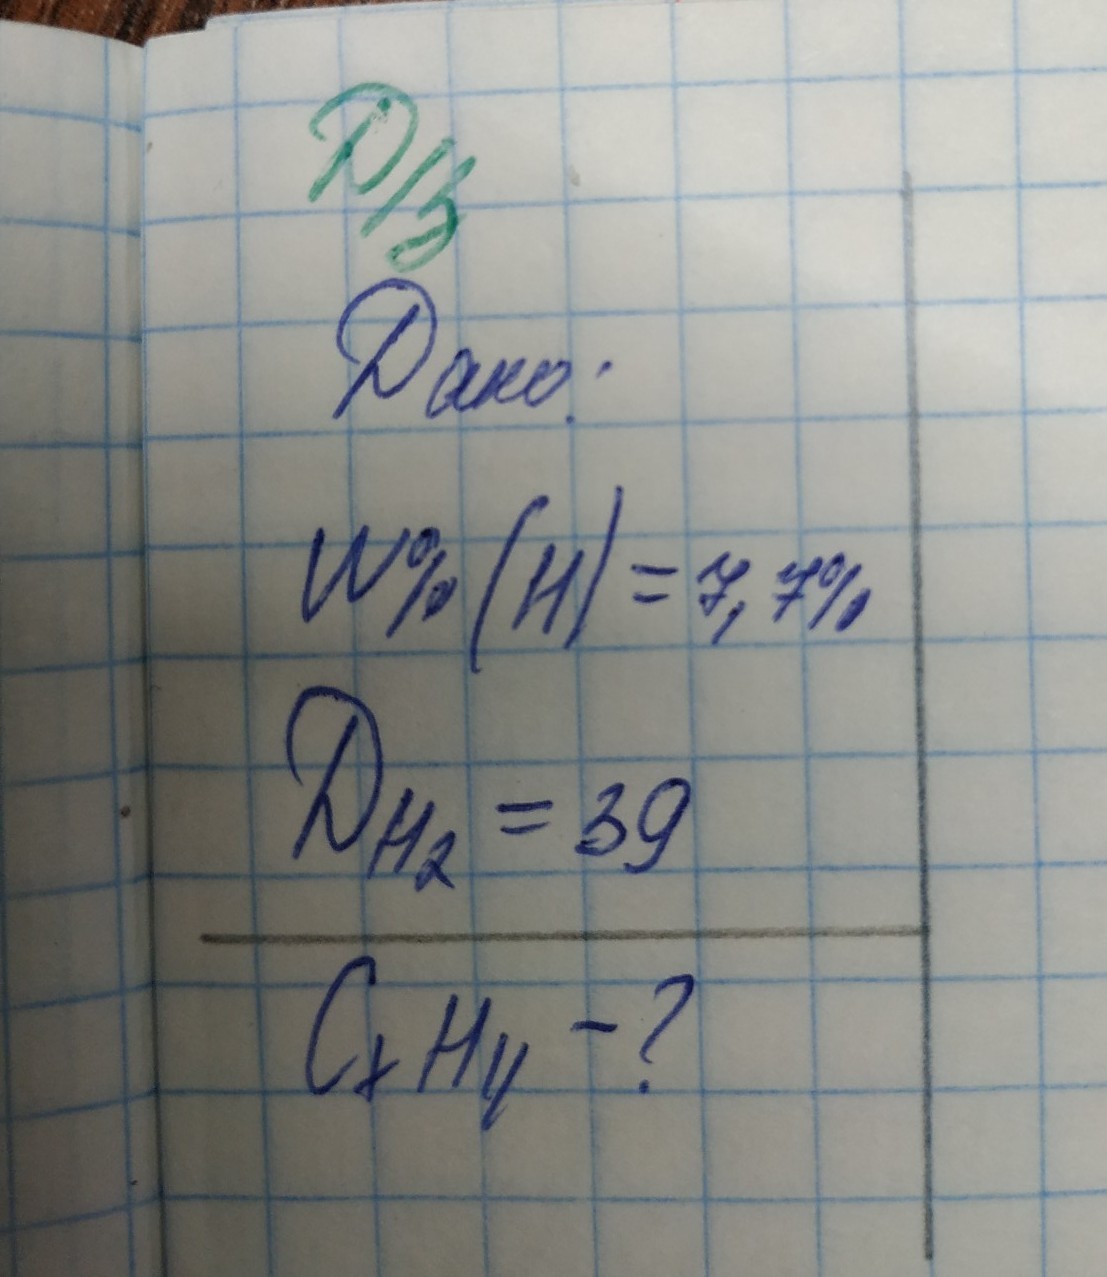 Д/з
Дано:
W%(H) = 7,7%
D_H₂ = 39
CₓHᵧ - ?